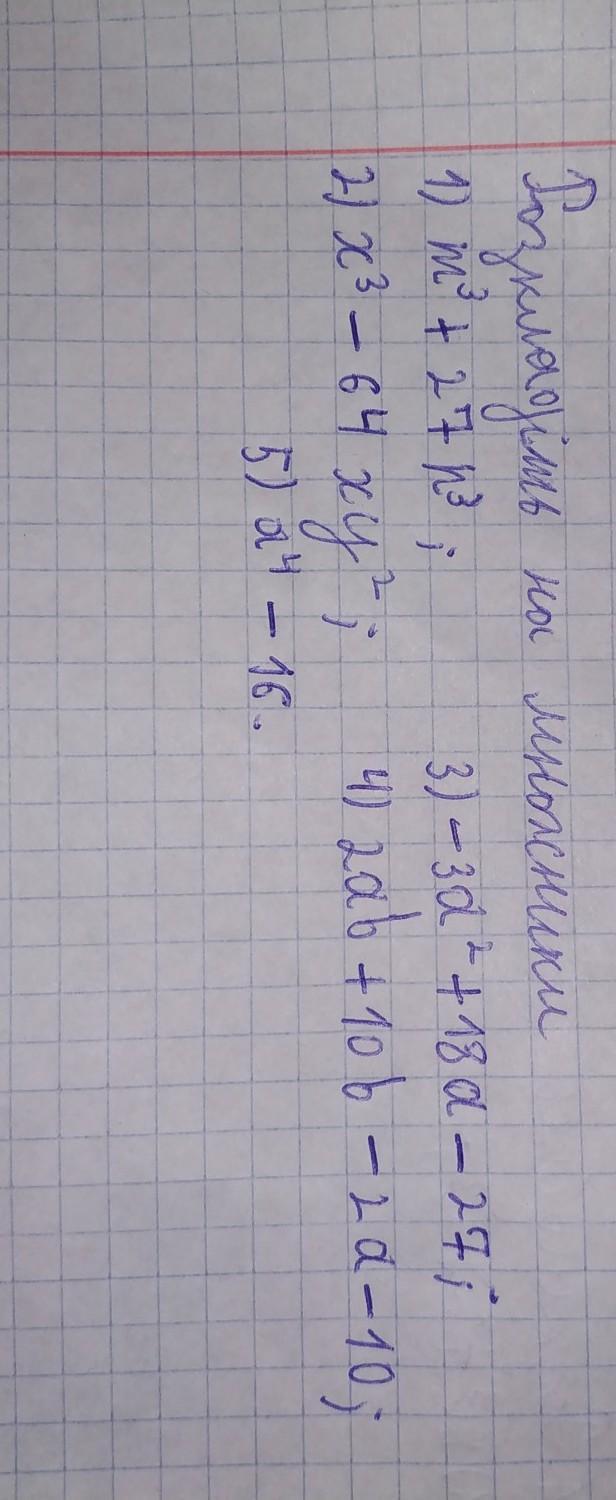 Розкладіть на множники
1) m³ + 27n³; 3) -3a² + 18a - 27;
2) x³ - 64xy²; 4) 2ab + 10b - 2a - 10;
5) a⁴ - 16.